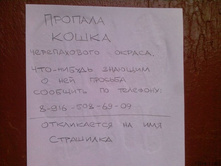 ПРОПАЛА
КОШКА
ЧЕРЕПАХОВОГО ОКРАСА.
ЧТО-НИБУДЬ ЗНАЮЩИМ
О НЕЙ ПРОСЬБА
СООБЩИТЬ ПО ТЕЛЕФОНУ:
8-916-508-69-09
ОТКЛИКАЕТСЯ НА ИМЯ
СТРАШИЛКА